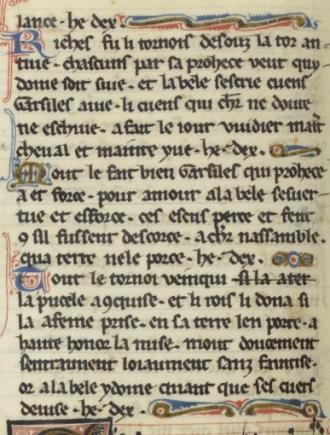 lance · he dex ·
Riches fu li tornois desouz la tor an
tiue · chascuns par sa prohece veut quil
done soit siue · et la bele sescrie cuens
Garsiles aiue · li cuens qui chr ne doute
ne eschiue · a fait le iour vuidier maint
cheual et mainte yue · he · dex ·
Mout le fait bien Garsiles qui prohece
a et force · pour amour a la bele sesuer
tue et efforce · ces escus perce et fent
9 sil fussent descorce · a chr nassamble
qua terre nele porce · he · dex ·
Tout le tornoi venqui si la ater
la pucele a 9quise · et li rois li dona si
la a feme prise · en sa terre len porte · a
haute honor la mise · mout doucement
sentraiment loiaument sanz faintise ·
or a la bele ydoine amant que ses cuers
deuise · he · dex ·